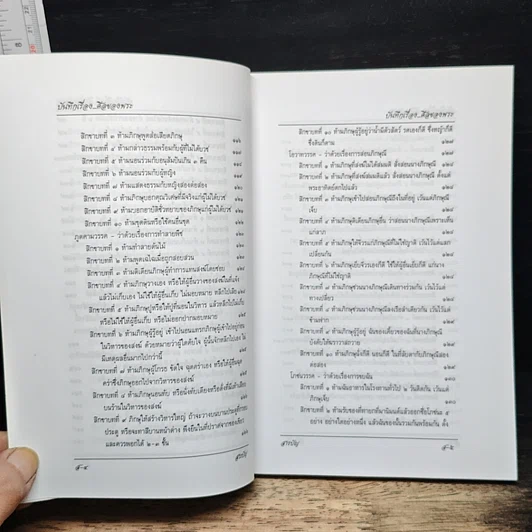 บันทึกเรื่อง..ศีลของพระ
สิกขาบทที่ ๓ ห้ามภิกษุพูดส่อเสียดภิกษุ
สิกขาบทที่ ๔ ห้ามกล่าวธรรมพร้อมกับผู้ที่ไม่ได้บวช
สิกขาบทที่ ๕ ห้ามนอนร่วมกับอนุสัมบันเกิน ๓ คืน
สิกขาบทที่ ๖ ห้ามนอนร่วมกับผู้หญิง
สิกขาบทที่ ๗ ห้ามแสดงธรรมกับหญิงสองต่อสอง
สิกขาบทที่ ๘ ห้ามภิกษุบอกคุณวิเศษที่มีจริงแก่ผู้ไม่ได้บวช
สิกขาบทที่ ๙ ห้ามบอกอาบัติชั่วหยาบของภิกษุแก่ผู้ไม่ได้บวช
สิกขาบทที่ ๑๐ ห้ามขุดดินหรือใช้คนอื่นขุด
ภูตคามวรรค - ว่าด้วยเรื่องการทำลายพืช
สิกขาบทที่ ๑ ห้ามทำลายต้นไม้
สิกขาบทที่ ๒ ห้ามพูดเฉไฉเมื่อถูกสอบสวน
สิกขาบทที่ ๓ ห้ามติเตียนภิกษุผู้ทำการแทนสงฆ์โดยชอบ
สิกขาบทที่ ๔ ห้ามภิกษุวางเอง หรือให้ผู้อื่นวางของสงฆ์ในที่แจ้ง
แล้วไม่เก็บเอง ไม่ใช้ให้ผู้อื่นเก็บ ไม่มอบหมาย หลีกไปเสีย
สิกขาบทที่ ๕ ห้ามภิกษุปูหรือให้ปูที่นอนในวิหาร แล้วหลีกไปไม่เก็บ
หรือไม่ใช้ให้ผู้อื่นเก็บ หรือไม่บอกฝากมอบหมาย
สิกขาบทที่ ๖ ห้ามภิกษุผู้รู้อยู่ เข้าไปนอนแทรกภิกษุผู้เข้าไปอยู่ก่อน
ในวิหารของสงฆ์ ด้วยหมายว่าผู้ใดคับใจ ผู้นั้นจักหลีกไปเอง ไม่
มีเหตุผลอื่นมากไปกว่านี้
สิกขาบทที่ ๗ ห้ามภิกษุผู้โกรธ ขัดใจ ฉุดคร่าเอง หรือให้ผู้อื่นฉุด
คร่าซึ่งภิกษุออกไปจากวิหารของสงฆ์
สิกขาบทที่ ๘ ห้ามภิกษุนอนทับ หรือนั่งทับเตียงหรือตั่งที่มีเท้าเสียบ
บนร้านในวิหารของสงฆ์
สิกขาบทที่ ๙ ภิกษุให้สร้างวิหารใหญ่
ประตู
และควรพอกได้ ๒-๓ ชั้น
สารบัญ
บันทึกเรื่อง..ศีลของพระ
สิกขาบทที่ ๑๐ ห้ามภิกษุผู้รู้อยู่ว่าน้ำมีตัวสัตว์ รดเองก็ดี ซึ่งหญ้าก็ดี
ซึ่งดินก็ตาม
โอวาทวรรค - ว่าด้วยเรื่องการสอนภิกษุณี
สิกขาบทที่ ๑ ห้ามภิกษุที่สงฆ์ไม่ได้สมมติ สั่งสอนนางภิกษุณี
สิกขาบทที่ ๒ ห้ามภิกษุที่สงฆ์สมมติแล้ว สั่งสอนนางภิกษุณี ตั้งแต่
พระอาทิตย์ตกไปแล้ว
สิกขาบทที่ ๓ ห้ามภิกษุเข้าไปสอนภิกษุณีถึงในที่อยู่ เว้นแต่ภิกษุณี
เจ็บ
สิกขาบทที่ ๔ ห้ามภิกษุติเตียนภิกษุอื่น ว่าสอนนางภิกษุณีเพราะเห็น
แก่ลาภ
สิกขาบทที่ ๕ ห้ามภิกษุให้จีวรแก่ภิกษุณีที่ไม่ใช่ญาติ เว้นไว้แต่แลก
เปลี่ยนกัน
สิกขาบทที่ ๖ ห้ามภิกษุเย็บจีวรเองก็ดี ใช้ให้ผู้อื่นเย็บก็ดี แก่นาง
ภิกษุณีที่ไม่ใช่ญาติ
สิกขาบทที่ ๗ ห้ามภิกษุชวนนางภิกษุณีเดินทางร่วมกัน เว้นไว้แต่
ทางเปลี่ยว
สิกขาบทที่ ๘ ห้ามภิกษุชวนนางภิกษุณีลงเรือลำเดียวกัน เว้นไว้แต่
ข้ามฟาก
สิกขาบทที่ ๙ ห้ามภิกษุผู้รู้อยู่ ฉันของเคี้ยวของฉันที่นางภิกษุณี
บังคับให้คฤหัสถ์ถวาย
สิกขาบทที่ ๑๐ ห้ามภิกษุนั่งก็ดี นอนก็ดี ในที่ลับตากับภิกษุณีสอง
ต่อสอง
โภชนวรรค - ว่าด้วยเรื่องการขบฉัน
สิกขาบทที่ ๑ ห้ามฉันอาหารในโรงทานทั่วไป ๒ วันติดกัน เว้นแต่
ภิกษุเจ็บ
สิกขาบทที่ ๒ ห้ามรับของที่ทายกที่มานิมนต์แล้วออกชื่อโภชนะ ๕
อย่าง อย่างใดอย่างหนึ่ง
สารบัญ